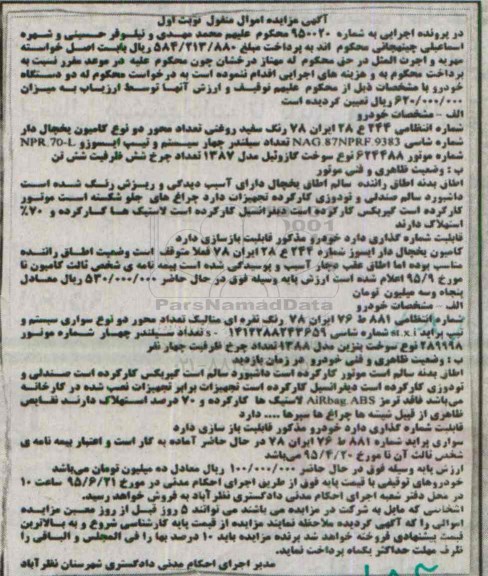 آگهی مزایده اموال منقول نوبت اول
در پرونده اجرایی به شماره ۹۵۰۰۲۰ محکوم علیهم محمد مهدی و نیلوفر حسینی و شهره
اسماعیلی چینهجانی محکوم اند به پرداخت مبلغ ۵۸۴/۲۱۳/۸۸۰ ریال بابت اصل خواسته
مهریه و اجرت المثل در حق محکوم له مهناز درخشان چون محکوم علیه در موعد مقرر نسبت به
پرداخت محکوم به و هزینه های اجرایی اقدام ننموده است به درخواست محکوم له دو دستگاه
خودرو با مشخصات ذیل از محکوم علیهم توقیف و ارزش آنها توسط ارزیاب به میزان
۶۲۰/۰۰۰/۰۰۰ ریال تعیین گردیده است
الف - مشخصات خودرو
شماره انتظامی ۲۴۴ ع ۲۸ ایران ۷۸ رنگ سفید روغنی تعداد محور دو نوع کامیون یخچال دار
شماره شاسی NAG.87NPRF.9383 تعداد سیلندر چهار سیلندر و تیپ ایسوزو NPR.70-L
شماره موتور ۶۲۴۴۸۸ نوع سوخت گازوئیل مدل ۱۳۸۷ تعداد چرخ شش ظرفیت شش تن
ب : وضعیت ظاهری و فنی موتور
اطاق بدنه اطاق راننده سالم اطاق یخچال دارای آسیب دیدگی و ریزش رنگ شده است
داشبورد سالم صندلی و تودوزی کارکرده تجهیزات دارد چراغ های جلو شکسته است موتور
کارکرده است گیربکس کارکرده است دیفرانسیل کارکرده است لاستیک ها کارکرده و ۷۰٪
استهلاک دارند
قابلیت شماره گذاری دارد خودرو مذکور قابلیت بازسازی دارد
کامیون یخچال دار ایسوز شماره ۲۴۴ ع ۲۸ ایران ۷۸ فعلا متوقف است وضعیت اطاق راننده
مناسب بوده اما اطاق عقب دچار آسیب و پوسیدگی شده است بیمه نامه ی شخص ثالث کامیون تا
مورخ ۹۵/۹ اعلام شده است ارزش پایه وسیله فوق در حال حاضر ۵۳۰/۰۰۰/۰۰۰ ریال معادل
پنجاه وسه میلیون تومان
الف - مشخصات خودرو
شماره انتظامی ۸۸۱ ط ۷۶ ایران ۷۸ رنگ نقره ای متالیک تعداد محور دو نوع سواری سیستم و
تیپ پراید st.x.i شماره شاسی s- ۱۴۱۲۲۸۸۲۴۳۶۵۹ تعداد سیلندر چهار شماره موتور
۲۸۹۹۱۸ نوع سوخت بنزین مدل ۱۳۸۸ تعداد چرخ ظرفیت چهار نفر
ب : وضعیت ظاهری و فنی خودرو در زمان بازدید
اطاق بدنه سالم است موتور کارکرده است داشبورد سالم است گیربکس کارکرده است صندلی و
تودوزی کارکرده است دیفرانسیل کارکرده است تجهیزات برابر تجهیزات نصب شده در کارخانه
میباشد فاقد ترمز AiRbag.ABS لاستیک ها کارکرده و ۷۰ درصد استهلاک دارند نقایص
ظاهری از قبیل شیشه ها چراغ ها سپرها .... دارد
قابلیت شماره گذاری دارد خودرو مذکور قابلیت باز سازی دارد
سواری پراید شماره ۸۸۱ ط ۷۶ ایران ۷۸ در حال حاضر آماده به کار است و اعتبار بیمه نامه ی
شخص ثالث آن تا مورخ ۹۵/۴/۲۰ میباشد
ارزش پایه وسیله فوق در حال حاضر ۱۰۰/۰۰۰/۰۰۰ ریال معادل ده میلیون تومان میباشد
خودروهای توقیفی با قیمت پایه فوق از طریق اجرای احکام مدنی در مورخ ۹۵/۶/۲۱ ساعت ۱۰
در محل دفتر شعبه اجرای احکام مدنی دادگستری نظرآباد به فروش خواهد رسید.
اشخاصی که مایل به شرکت در مزایده می باشند می توانند ۵ روز قبل از روز معین مزایده
اموالی را که آگهی گردیده ملاحظه نمایند مزایده از قیمت پایه کارشناسی شروع و به بالاترین
قیمت پیشنهادی فروخته خواهد شد برنده مزایده باید ۱۰ درصد بها را فی المجلس و الباقی را
ظرف مهلت حداکثر یکماه پرداخت نماید.
مدیر اجرای احکام مدنی دادگستری شهرستان نظرآباد
ParsNamadData